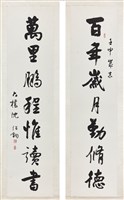 百年歲月勤脩德
萬里鵬程惟讀書